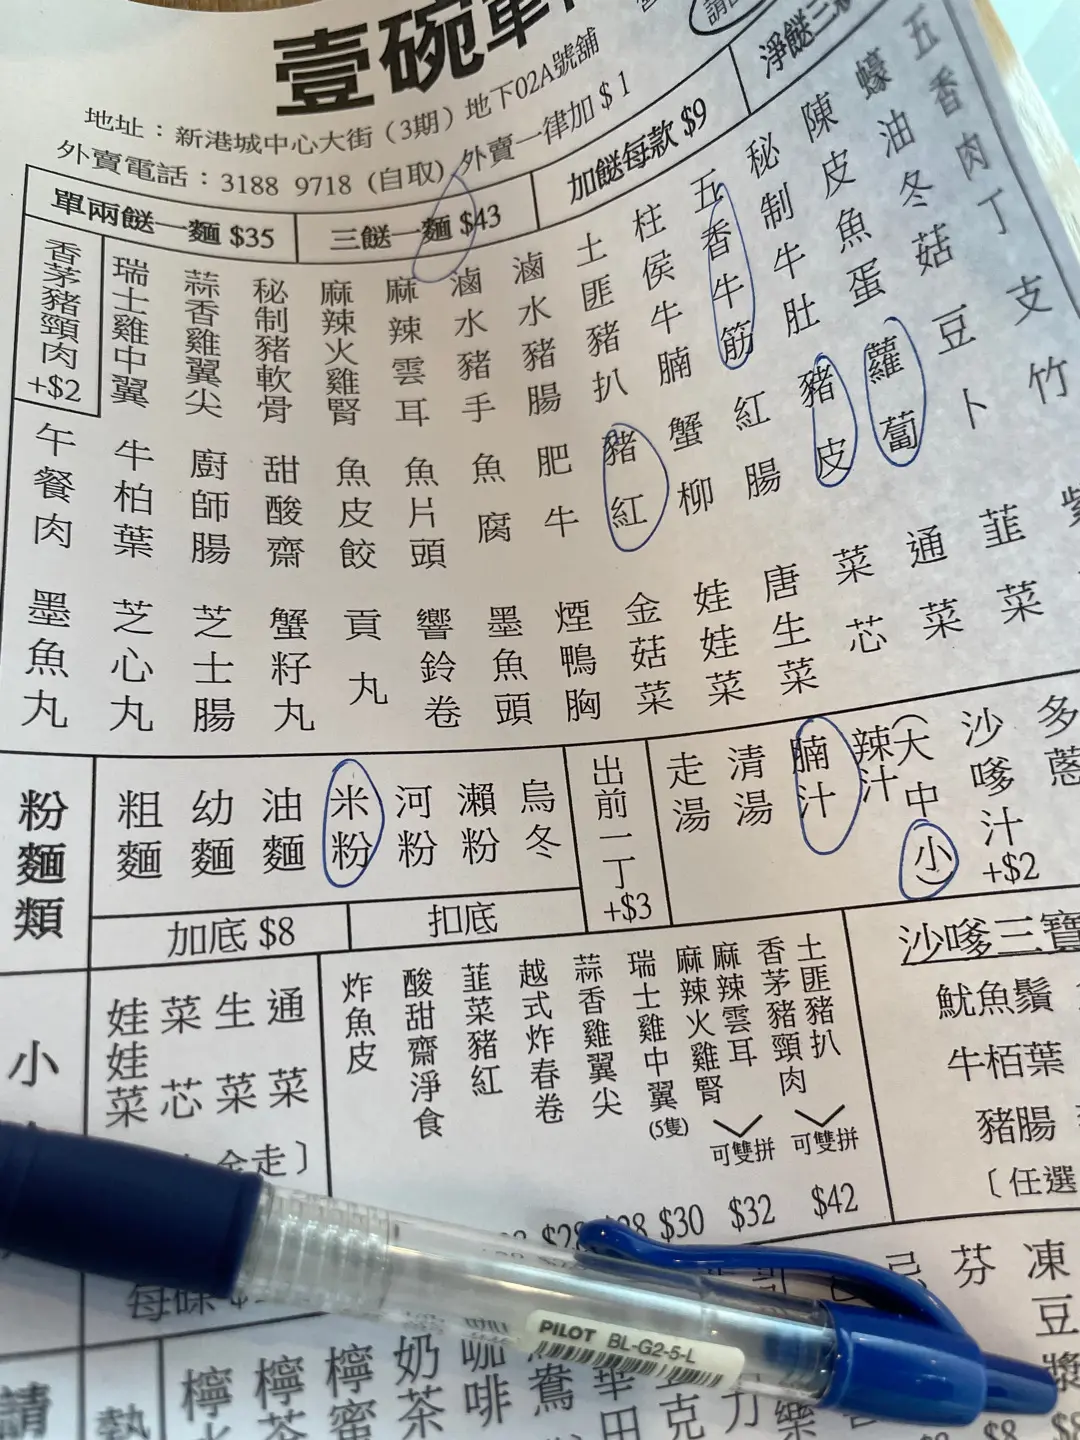 壹碗
地址：新港城中心大街（3期）地下02A號舖
外賣電話：3188 9718 (自取) 外賣一律加 $ 1
單兩餸一麵 $35
三餸一麵 $43
加餸每款 $9
淨餸三
香茅豬頸肉 +$2
瑞士雞中翼
蒜香雞翼尖
秘制豬軟骨
麻辣火雞腎
麻辣雲耳
滷水豬手
滷水豬腸
土匪豬扒
柱侯牛腩
五香牛筋
秘制牛肚
陳皮魚蛋
蠔油冬菇
五香肉丁
午餐肉
牛柏葉
廚師腸
甜酸齋
魚皮餃
魚片頭
魚腐
肥牛
豬紅
蟹柳
紅腸
豬皮
蘿蔔
豆卜
支竹
墨魚丸
芝心丸
芝士腸
蟹籽丸
貢丸
響鈴卷
墨魚頭
煙鴨胸
金菇菜
娃娃菜
唐生菜
菜芯
通菜
韮菜
紫
粉麵類
粗麵
幼麵
油麵
米粉
河粉
瀨粉
烏冬
出前一丁 +$3
走湯
清湯
腩汁
辣汁
（大中小）
沙嗲汁 +$2
多蔥
加底 $8
扣底
小
娃娃菜
菜芯
生菜
通菜
走〕
炸魚皮
酸甜齋淨食
韮菜豬紅
越式炸春卷
蒜香雞翼尖
瑞士雞中翼 (5隻)
麻辣火雞腎
麻辣雲耳
可雙拼
香茅豬頸肉
土匪豬扒
可雙拼
$30 $32 $42
沙嗲三寶
魷魚鬚
牛栢葉
豬腸
〔任選
PILOT BL-G2-5-L
請
熱
檸
檸
檸蜜
奶茶
咖啡
鴦
田
克
力
樂
芬
凍豆漿
$8